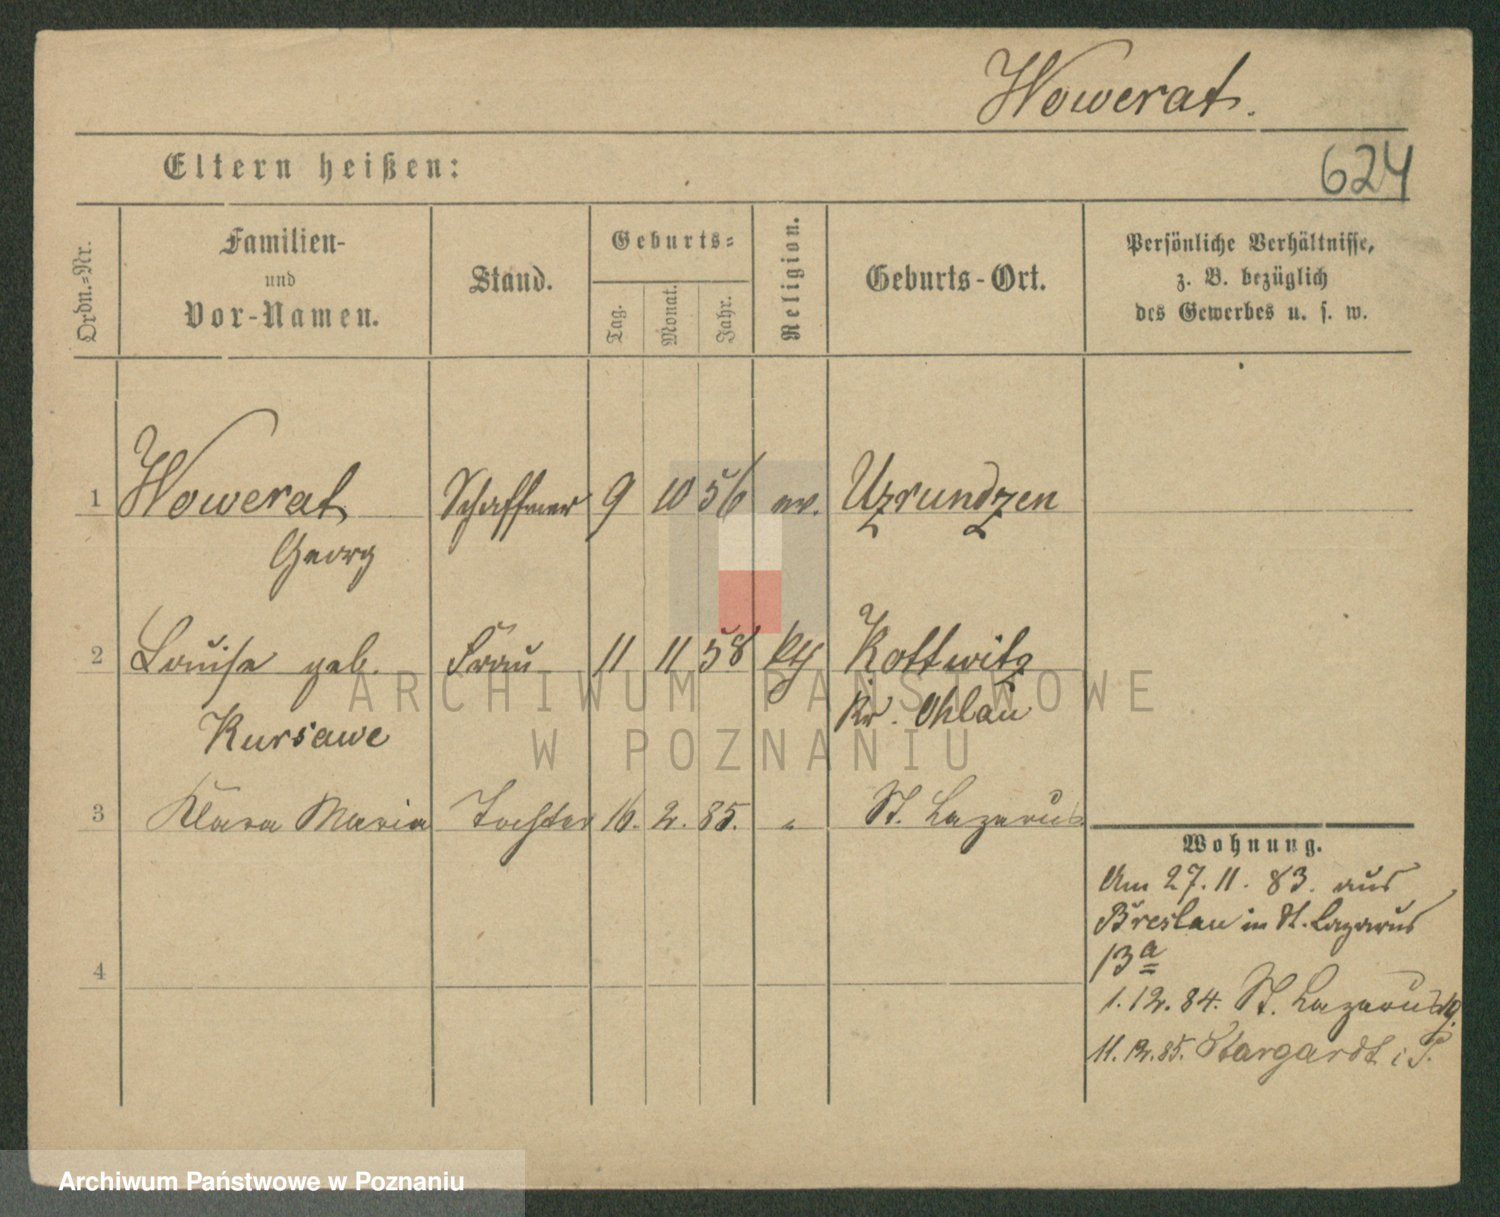 Wowerat.
Eltern heißen:
624
Ordn.-Nr.
Familien-
und
Vor-Namen.
Stand.
Geburts-
Tag.
Monat.
Jahr.
Religion.
Geburts-Ort.
Persönliche Verhältnisse,
z. B. bezüglich
des Gewerbes u. s. w.
1 Wowerat Schaffner 9 10 56 ev. Uzrundzen
Georg
2 Louise geb. Frau 11 11 58 kth Kottwitz
Kursawe Kr. Ohlau
3 Klara Maria Tochter 16. 2. 85. " St. Lazarus
4
Wohnung.
Am 27. 11. 83. aus
Breslau in St. Lazarus
13a
1. 12. 84. St. Lazarus
11. 12. 85. Stargardt i. P.
ARCHIWUM PAŃSTWOWE
W POZNANIU
Archiwum Państwowe w Poznaniu